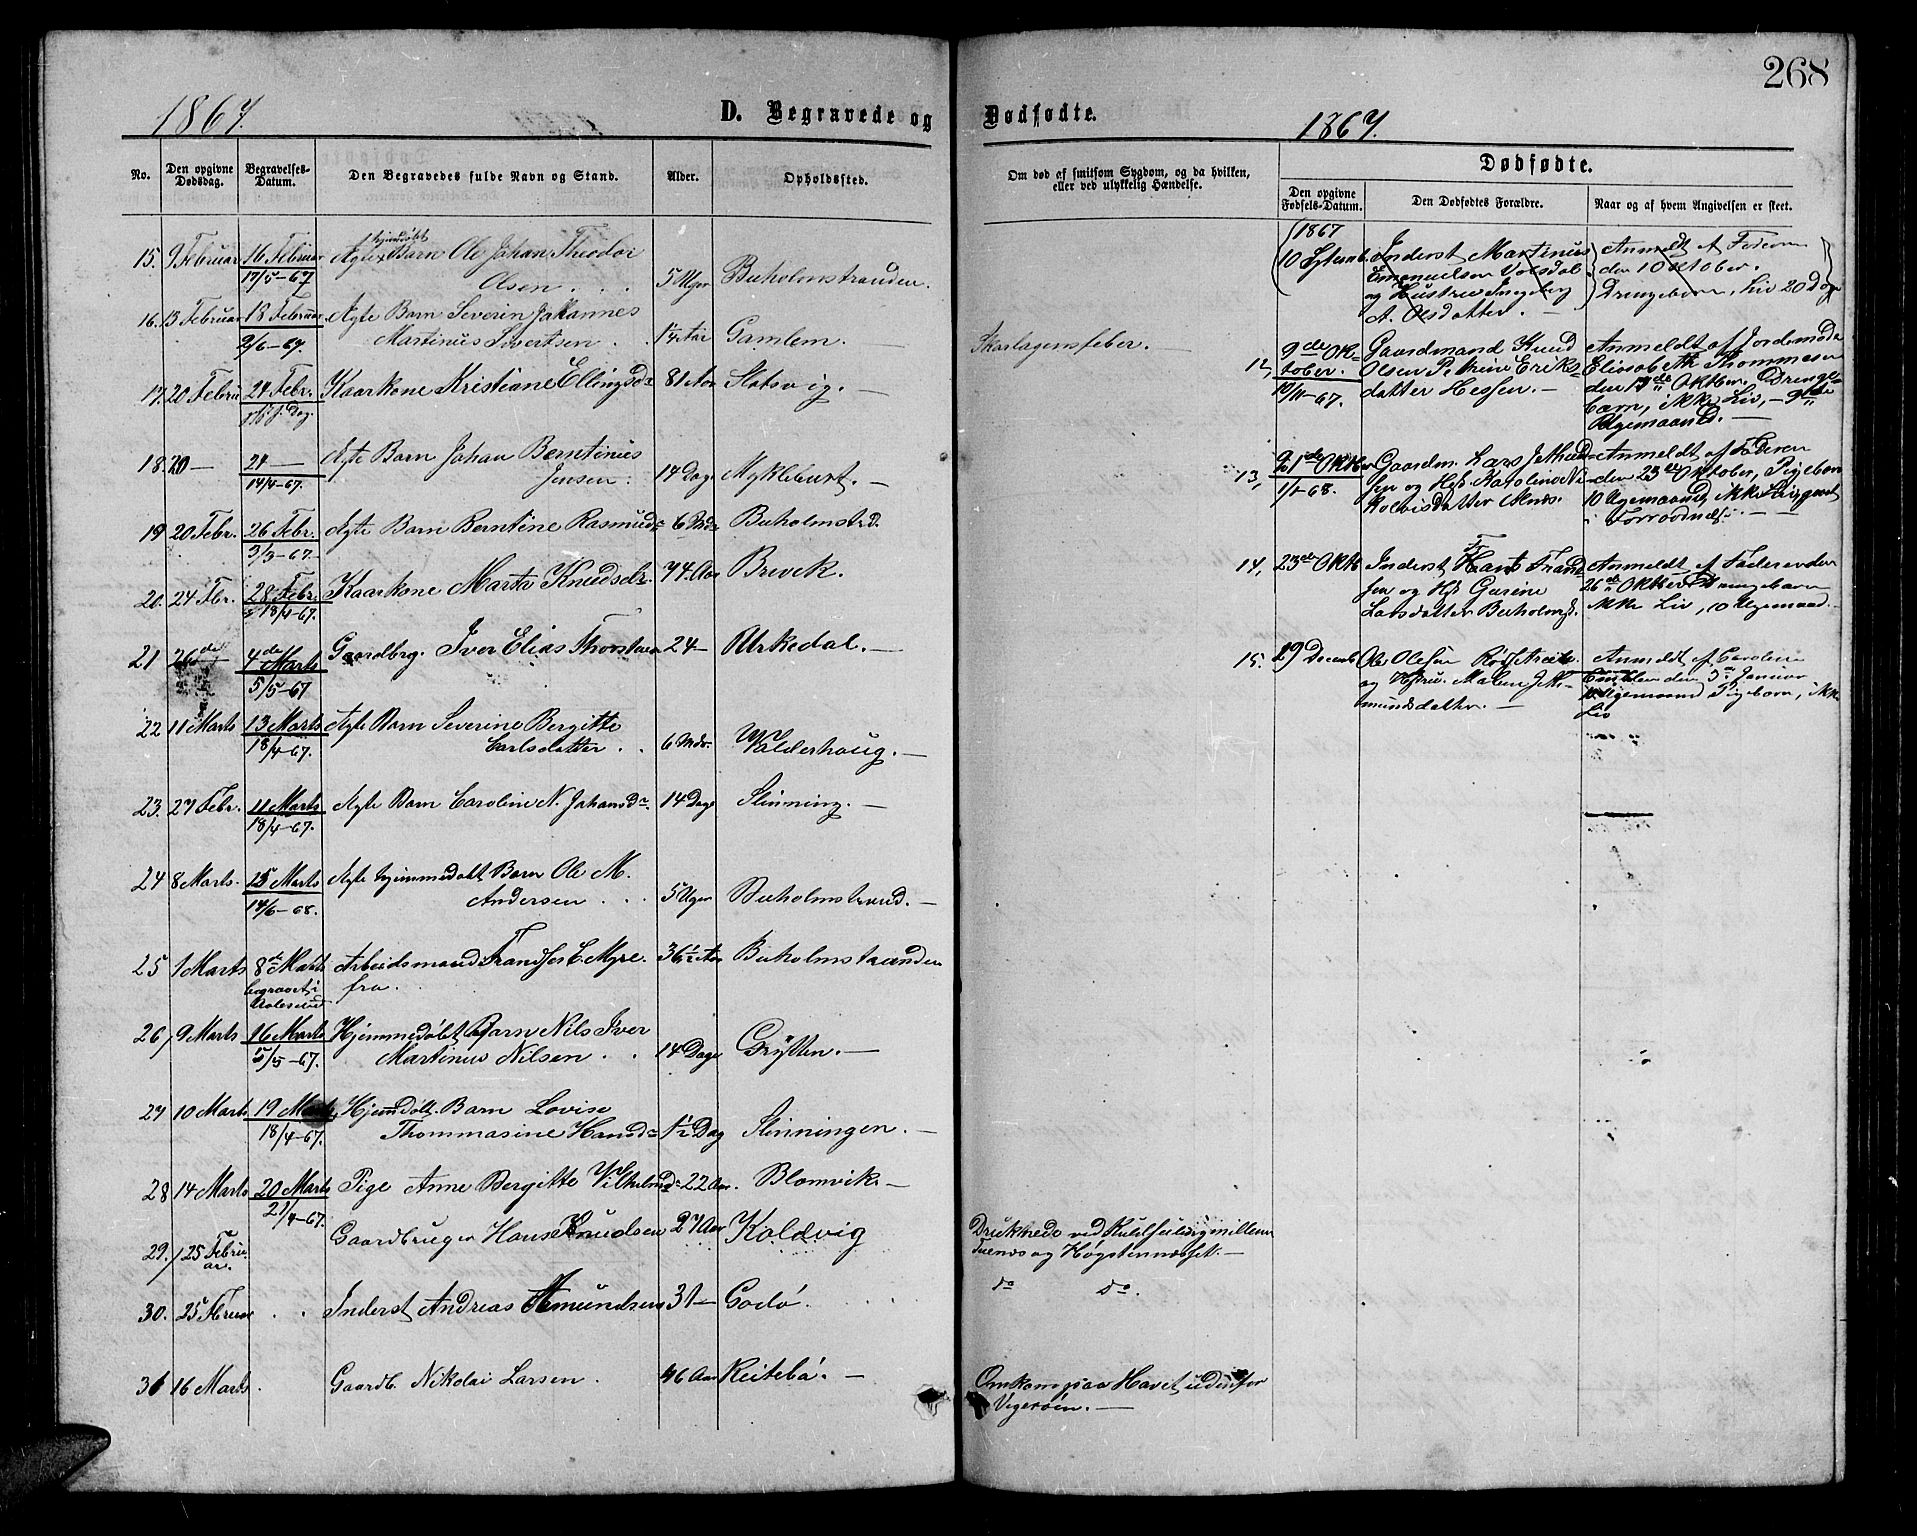 268
1867.
D. Begravede og Dødfødte.
1867.
No.
Den opgivne Dødsdag.
Begravelses-Datum.
Den Begravedes fulde Navn og Stand.
Alder.
Opholdssted.
Om død af smitsom Sygdom, og da hvilken, eller ved ulykkelig Hændelse.
Dødfødte.
Den opgivne Fødsels-Datum.
Den Dødfødtes Forældre.
Naar og af hvem Angivelsen er skeet.
15. 9 Februar 16 Februar Ægte hjemdøbt Barn Ole Johan Theodor
17/5-67 Olsen . . . 5 Uger Buholmstranden.
16. 13 Februar 18 Februar Ægte Barn Severin Johannes
2/6-67. Martinus Sivertsen . Aar Gamlem. — Skarlagensfeber. —
17. 20 Febru 24 Febr. Kaarkone Kristiane Ellingsdr 81 Aar Slotsvig. —
18. 20 — 24 — Ægte Barn Johan Berntinus
14/4-67. Jensen. 14 Dage Myklebust. —
19 20 Febr. 26 Febr. Ægte Barn Berntine Rasmusd 6 Mdr Buholmstrd.
3/3-67.
20. 24 Fbr. 28 Febr. Kaarkone Marte Knudsdr. 74 Aar Brevik.
18/4-67.
21 26de 4de Marts Gaardbrg. Iver Elias Thorstensen 24 — Urkedal. —
5/5-67
22 11 Marts 13 Marts Ægte Barn Severine Bergitte
18/4-67. Carlsdatter . . 6 Mdr. Valderhoug. —
23. 27 Febr. 11 Marts Ægte Barn Caroline N. Johansdr. 14 Dage Slinning. —
18/4-67.
24 8 Marts. 15 Marts Ægte hjemmedøbt Barn Ole M.
14/6-68. Andersen . . 5 Uger Buholmstrand. —
25 1 Marts 8de Marts Arbeidsmand Frands C. Myre. 36 1/2 Aar Buholmstranden
begravet i fra.
Aalesund
26, 9 Marts 16 Marts Hjemmedøbt Barn Nils Iver
5/5-67. Martinus Nilsen . . 14 Dage Grytten. —
27 10 Marts 19 Marts Hjemdøbt. Barn Lovise
18/4-67. Thommasine Hansdr 1 1/2 Dag Slinningen. —
28 14 Marts 20 Marts Pige Anne Bergitte Vilhelmsdr 22 Aar. Blomvik. —
21/4-67.
29. 25 Februar. Gaardbruger Hans Knudsen 27 Aar Koldvig Druknede ved Kuldseiling mellem
og Høgstennæsset. —
30. 25 Februar . . Inderst Andreas Amundsen 31 — Godö. do do.
31 16 Marts. Gaardb. Nikolai Larsen . 46 Aar Reitebö. — Omkom paa Havet udenfor
Vigeröen. —
(1867
10 Septemb. Inderst Martinus Anmeldt af Faderen
Emanuelsen Volsdal den 10 October.
og Hustru Ingeborg Drengebarn, Liv 20 Dage
A. Olsdatter. —
12, 9de Oktober. Gaardmand Knud Anmeldt af Jordemoder
10/11-67. Olsen Petrine Eriks- Elisabeth Thommesen
datter Hessen. — den 17de Oktber. Drenge-
barn, ikke Liv, — 9de
Ugemaaned. —
13, 21de Oktber Gaardm. Lars J. Anmeldt af Faderen
1/1-68. sen og Hst. Karoline Ni- den 23de Oktober, Pigebarn
datter Alnes. 10 Ugemaaned, ikke Liv,
i Forraadnels. —
14, 23de Oktb Inderst Hans Frand- Anmeldt af Faderen den
sen og Hst Gurine 26de Oktber Drengebarn
Larsdatter Buholmst. ikke Liv, 10 Ugemaaned.
15. 29 Decemb Ole Olesen Röds Anmeldt af Caroline
og Hustru. Malene den 3de Januar
mundsdatter. — Ugemaaned Pigebarn, ikke
Liv